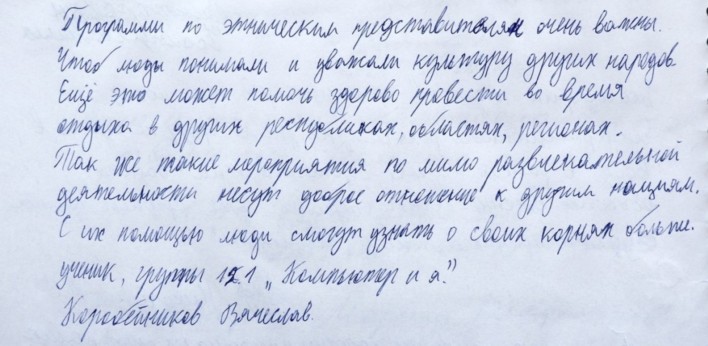 Программы по этническим представителям очень важны.
Чтоб люды понимали и уважали культуру других народов.
Ещё это может помочь здорово провести во время
отдыха в других республиках, областях, регионах.
Так же такие мероприятия по мимо развлекательной
деятельности несут доброе отношение к другим нациям.
С их помощью люди смогут узнать о своих корнях больше.
ученик, группы 121 „Компьютер и я."
Коробейников Вячеслав.